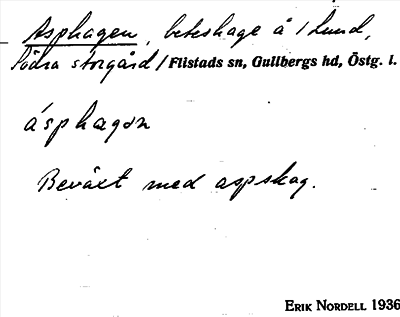 Asphagen, beteshage å / Lund,
Södra storgård / Flistads sn, Gullbergs hd, Östg. l.
ásphagən
Beväxt med aspskog.
ERIK NORDELL 1936